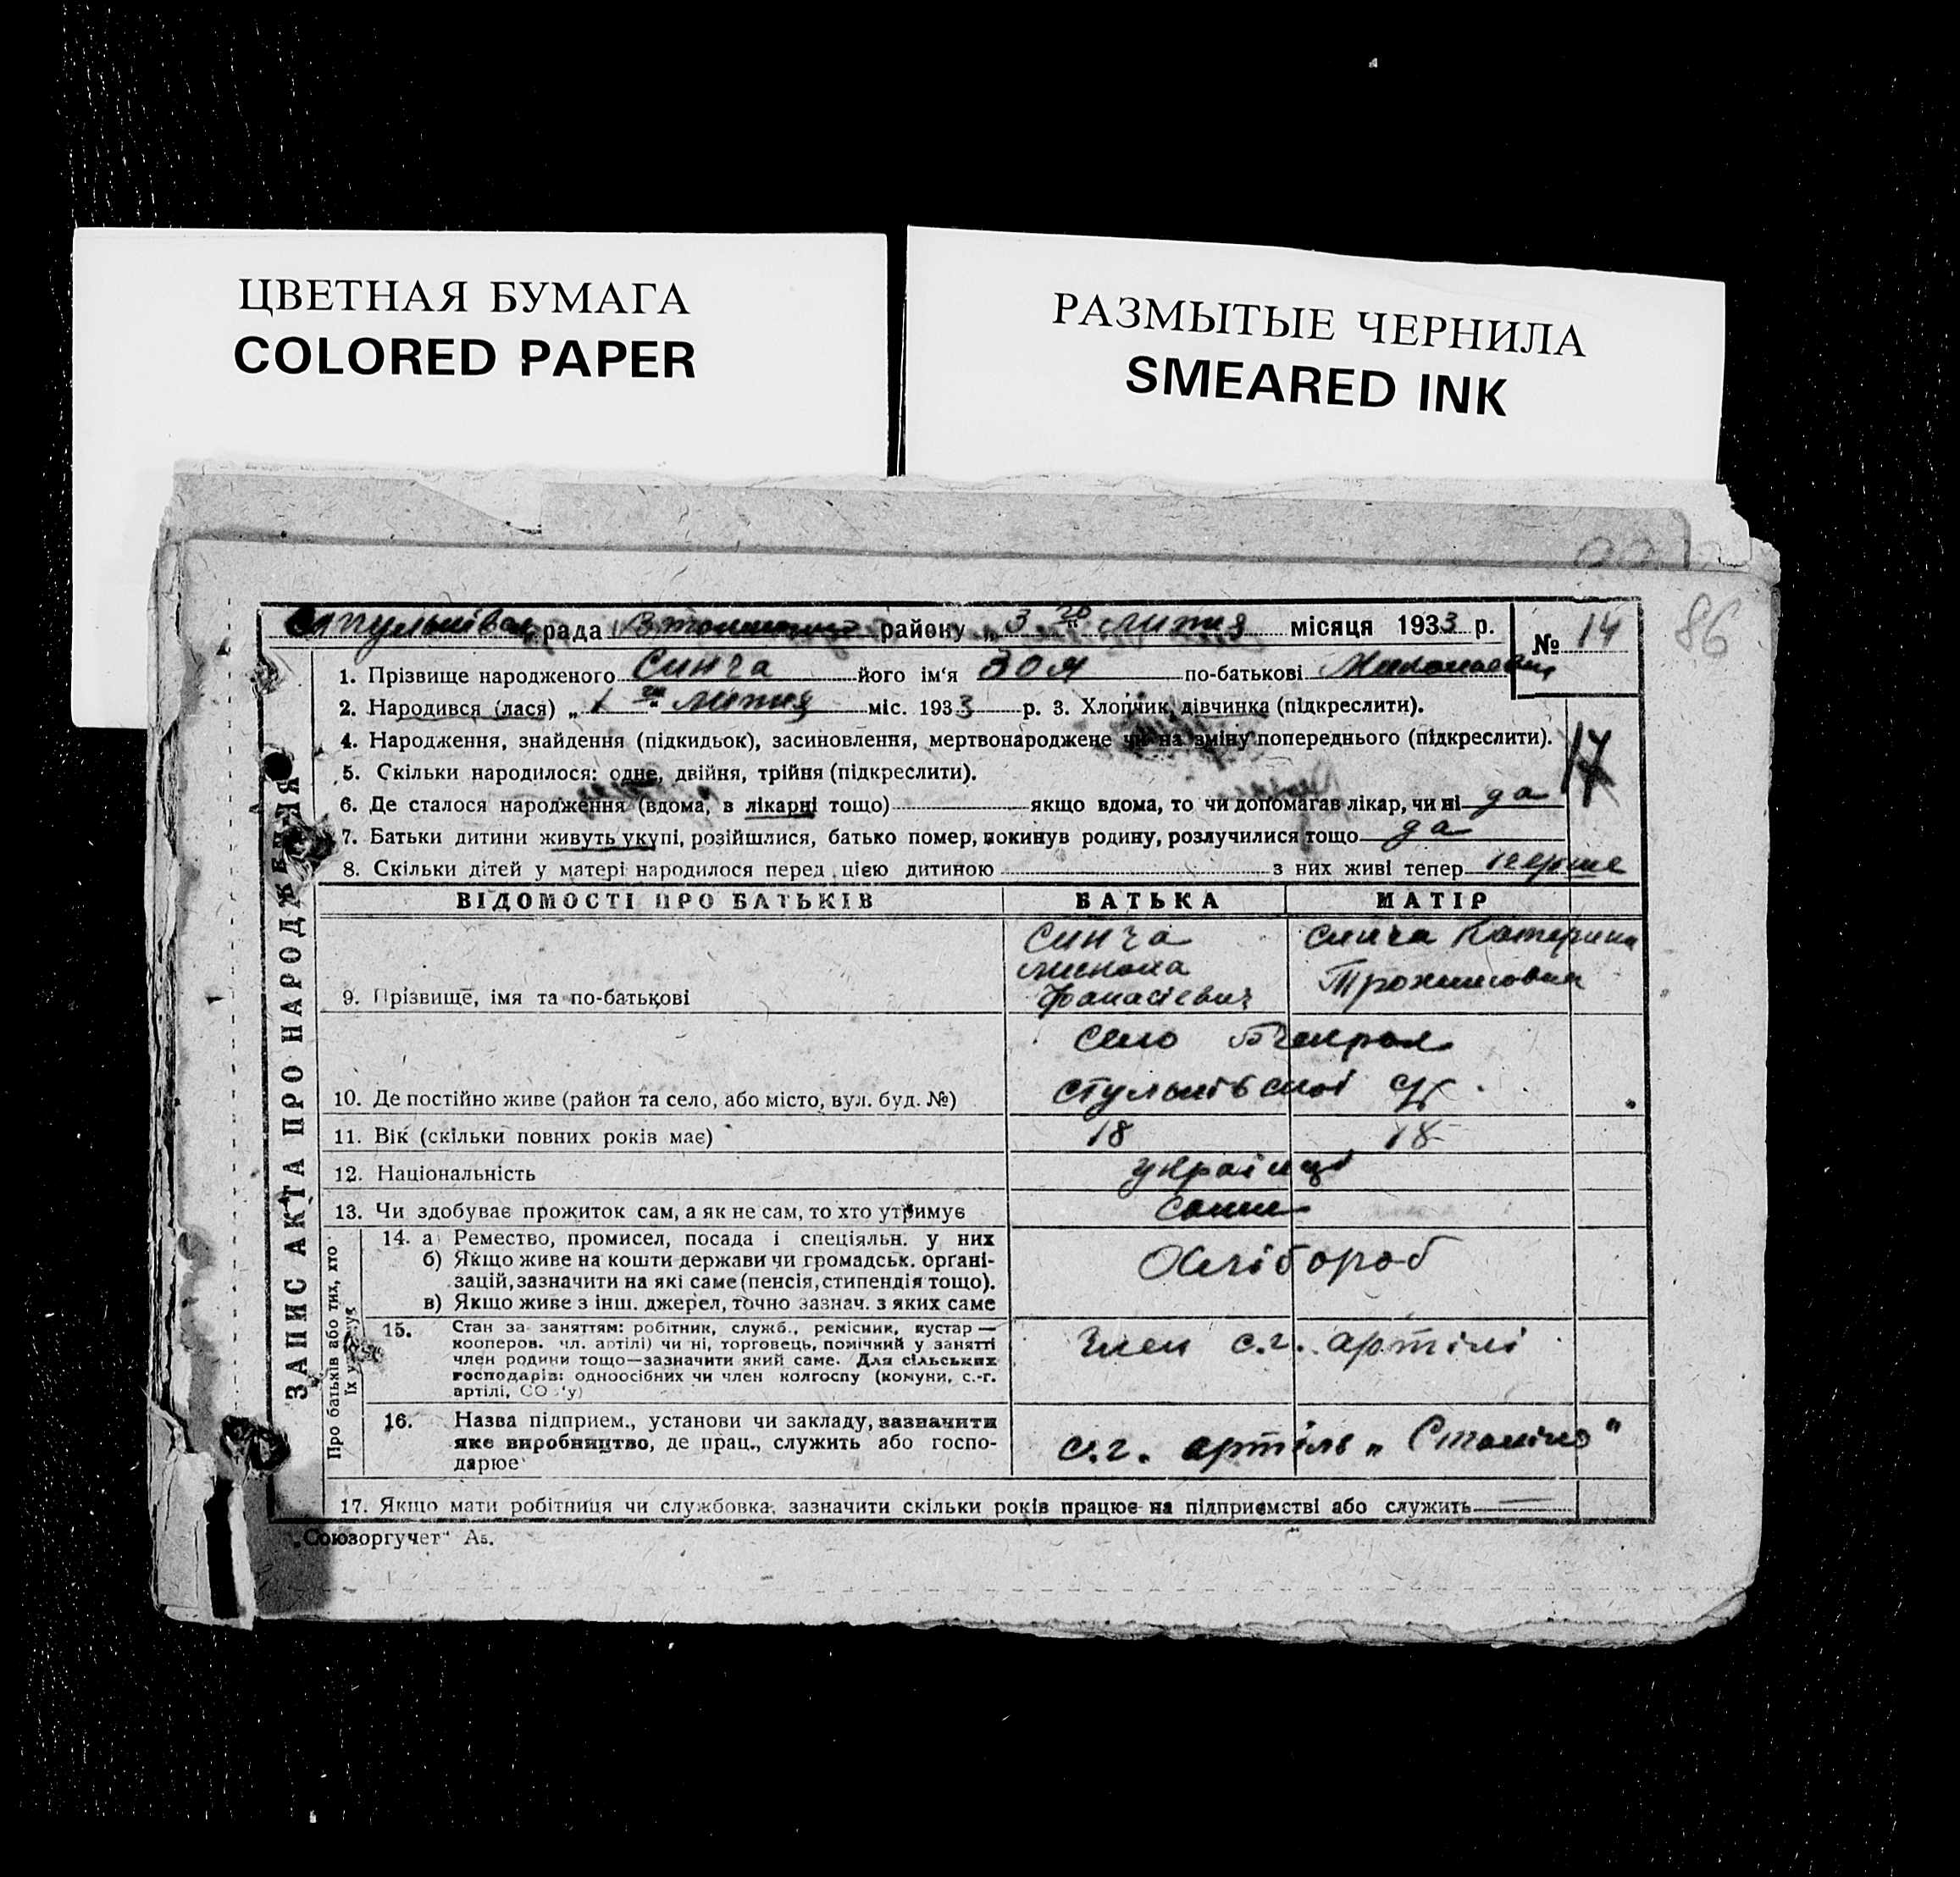 ЦВЕТНАЯ БУМАГА
COLORED PAPER
РАЗМЫТЫЕ ЧЕРНИЛА
SMEARED INK
86
рада району „ 3 го лютня місяця 1933 р. № 14
1. Прізвище народженого Синча його ім‘я Зоя по-батькові
2. Народився (лася) „ 1 го “ лютня міс. 1933 р. 3. Хлопчик, дівчинка (підкреслити).
4. Народження, знайдення (підкидьок), засиновлення, мертвонароджене чи на зміну попереднього (підкреслити).
17
5. Скільки народилося: одне, двійня, трійня (підкреслити).
6. Де сталося народження (вдома, в лікарні тощо) якщо вдома, то чи допомагав лікар, чи ні да
7. Батьки дитини живуть укупі, розійшлися, батько помер, покинув родину, розлучилися тощо да
8. Скільки дітей у матері народилося перед цією дитиною з них живі тепер перше
ЗАПИС АКТА ПРО НАРОДЖЕННЯ
ВІДОМОСТІ ПРО БАТЬКІВ БАТЬКА МАТІР
Синча Синча Катерина
Микола
9. Прізвище, імя та по-батькові Фанасієвич
село
10. Де постійно живе (район та село, або місто, вул. буд. №) Стульнівскої
11. Вік (скільки повних років має) 18 18
12. Національність українці
13. Чи здобуває прожиток сам, а як не сам, то хто утримує сами
Про батьків або тих, хто їх
14. а) Ремество, промисел, посада і спеціяльн. у них
б) Якщо живе на кошти держави чи громадськ. органі-
зацій, зазначити на які саме (пенсія, стипендія тощо).
в) Якщо живе з інш. джерел, точно зазнач. з яких саме
Хлібороб
15. Стан за заняттям: робітник, служб., ремісник, кустар —
кооперов. чл. артілі) чи ні, торговець, помічний у занятті
член родини тощо—зазначити який саме. Для сільських
господарів: одноосібних чи член колгоспу (комуни, с.-г.
артілі, СО
Член с.г. артілі
16. Назва підприєм., установи чи закладу, зазначити
яке виробництво, де прац., служить або госпо-
дарює
с.г. артіль „
17. Якщо мати робітниця чи службовка, зазначити скільки років працює на підприємстві або служить
„Союзоргучет“ А5.